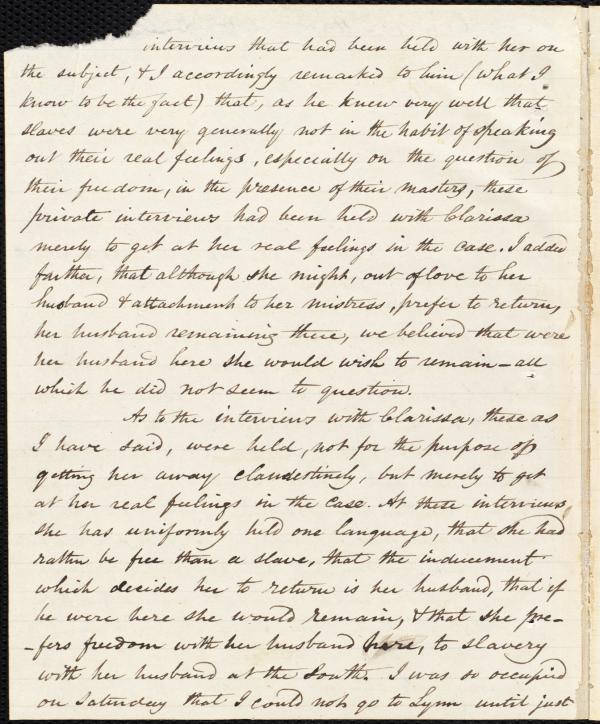 interviews that had been held with her on
the subject, & I accordingly remarked to him (what I
know to be the fact) that, as he knew very well that
slaves were very generally not in the habit of speaking
out their real feelings, especially on the question of
their freedom, in the presence of their masters, these
private interviews had been held with Clarissa
merely to get at her real feelings in the case. I added
farther, that although she might, out of love to her
husband & attachment to her mistress, prefer to return,
her husband remaining there, we believed that were
her husband here she would wish to remain - all
which he did not seem to question.
As to the interviews with Clarissa, these as
I have said, were held, not for the purpose of
getting her away clandestinely, but merely to get
at her real feelings in the case. At these interviews
she has uniformly held one language, that she had
rather be free than a slave, that the inducement
which decides her to return is her husband, that if
he were here she would remain, & that she pre-
-fers freedom with her husband here, to slavery
with her husband at the South. I was so occupied
on Saturday that I could not go to Lynn until just